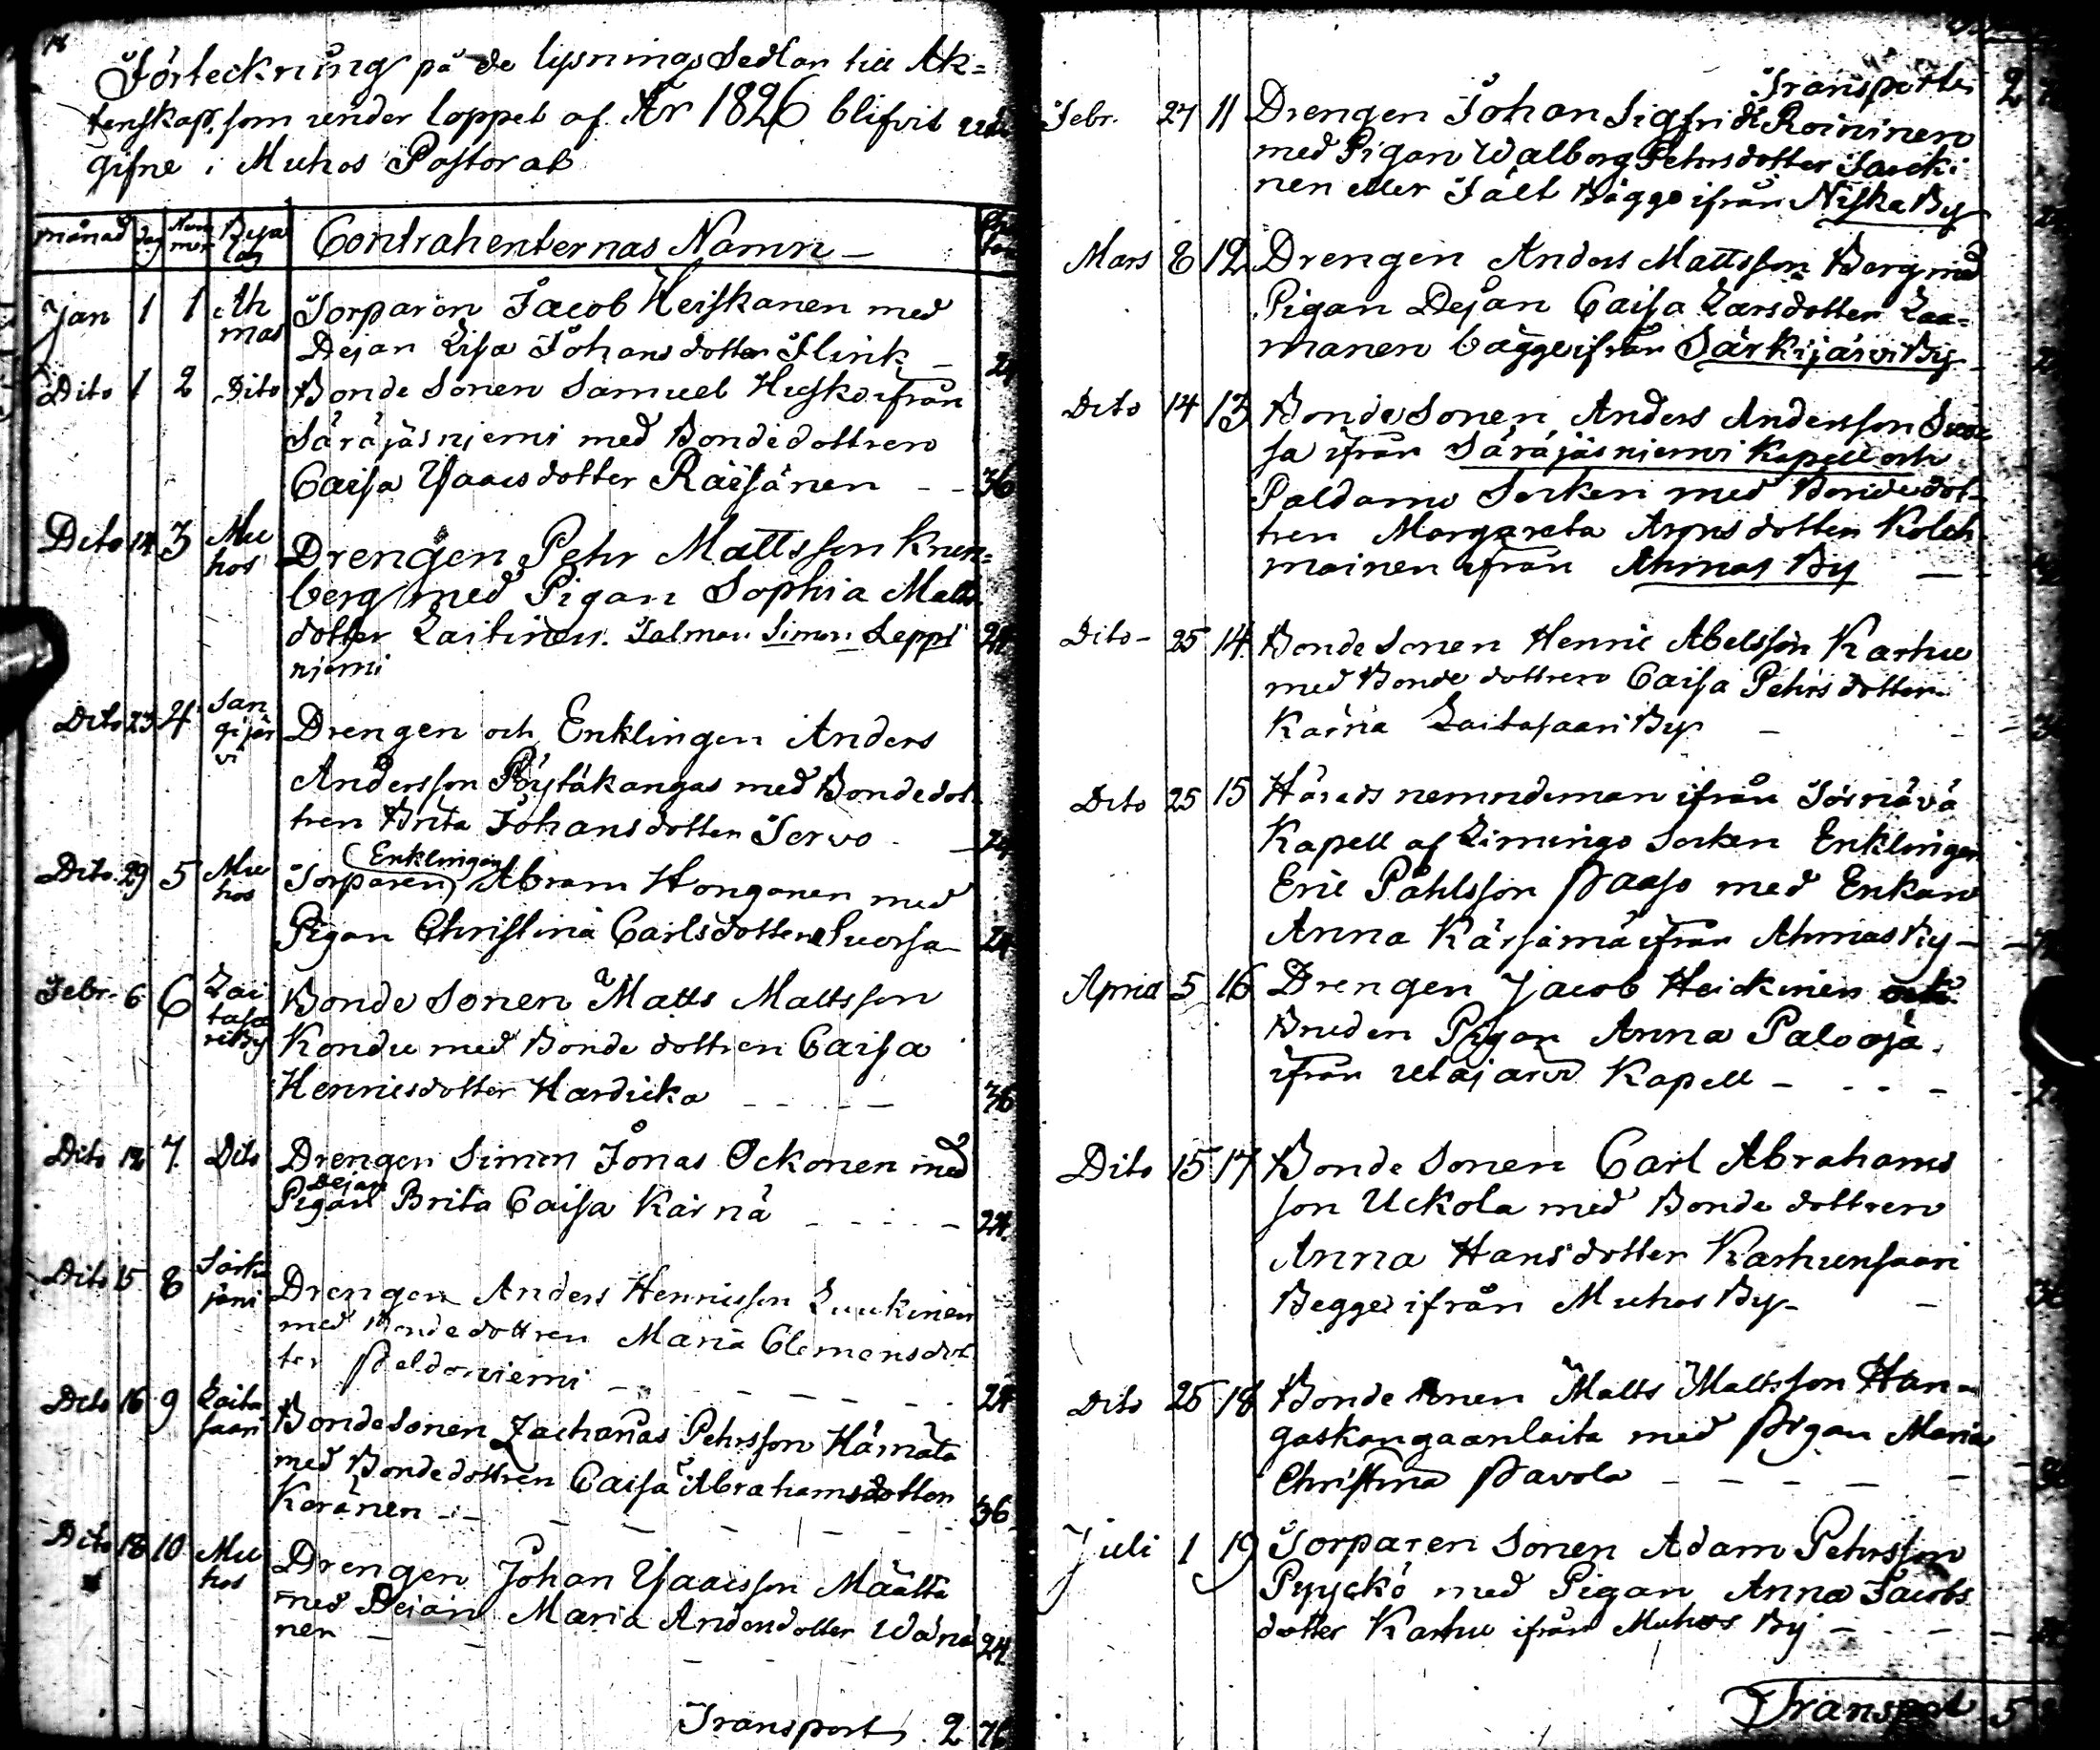 18
Förteckning på de lysnings Sedlar till Äk=
tenskap, som under loppet af År 1826 blifvit ut
gifne i Muhos Pastorat
månad dag Num mer Bya lag Contrahenternas Namn
Jan 1 1 Ah mas Torparen Jacob Heiskanen med
Dejan Lisa Johansdotter Flink 24
Dito 1 2 Dito Bonde Sonen Samuel Husko ifrån
Säräjäsniemi med Bondedottren
Caisa Isaacsdotter Räisänen - - 36
Dito 14 3 Mu hos Drengen Pehr Mattsson Knen=
berg med Pigan Sophia Matts
dotter Laitinen. Talman Simon Leppi 24
niemi
Dito 23 4 San gijär vi Drengen och Enklingen Anders
Andersson Pöystäkangas med Bondedot
tren Brita Johansdotter Servo - 24
(Enklingen
Dito 29 5 Mu hos Torparen) Abram Honganen med
Pigan Christina Carlsdotter Suorsa 24
Febr. 6 6 Lai tasa ri By Bonde Sonen Matts Mattsson
Kondu med Bonde dottren Caisa
Henricsdotter Harducka - - - - 36
Dito 12 7. Dito Drengen Simon Jonas Ockonen med
Dejan
Pigan Brita Caisa Kärnä - - - - 24
Dito 15 8 Särki järvi Drengen Anders Henricsson Luukinen
med Bondedottren Maria Clemensdot
ter Peldoniemi - - - - 24
Dito 16 9 Laita saari Bonde Sonen Zacharias Pehrsson Hämälä
med Bondedottren Caisa Abrahamsdotter
Keränen - - - - - 36
Dito 18 10 Mu hos Drengen Johan Isaacsson Määttä
med Dejan Maria Andersdotter Wänä
nen - - - 24
Transport 2 76
Transport 2
Febr. 27 11 Drengen Johan Sigfrid Roininen
med Pigan Walborg Pehrsdotter Sarki
nen eller Fält Bägge ifrån Niska By
Mars 8 12 Drengen Anders Mattsson Berg med
Pigan Dejan Caisa Larsdotter Laa=
manen bägge ifrån Särkijärvi By
Dito 14 13 Bonde Sonen Anders Andersson Suor
sa ifrån Säräjäsniemi Kapell och
Paldamo Socken med Bondedot
tren Margareta Arons dotter Koleh
mainen ifrån Ahmas By -
Dito - 25 14. Bonde Sonen Henric Abelsson Karhu
med Bonde dottren Caisa Pehrsdotter
Kärnä Laitasaari By -
Dito 25 15 Härads nemndeman ifrån Törnävä
Kapell af Limingo Socken Enklingen
Eric Påhlsson Paaso med Enkan
Anna Kärsämä ifrån Ahmas By -
April 5 16 Drengen Jacob Heickinen och
Bruden Pigan Anna Palooja
ifrån Utajärvi Kapell - - - -
Dito 15 17 Bonde Sonen Carl Abrahams
son Uckola med Bonde dottren
Anna Hansdotter Karhunsaari
Begge ifrån Muhos By -
Dito 25 18 Bonde Sonen Matts Mattsson Han=
gaskangaanlaita med Pigan Maria
Christina Pavola - - - -
Juli 1 19 Torparen Sonen Adam Pehrsson
Pyyckö med Pigan Anna Jacobs
dotter Karhu ifrån Muhos By - - -
Transport 5